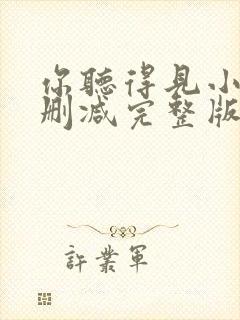 你聽得見小
刪减完整版
許業軍